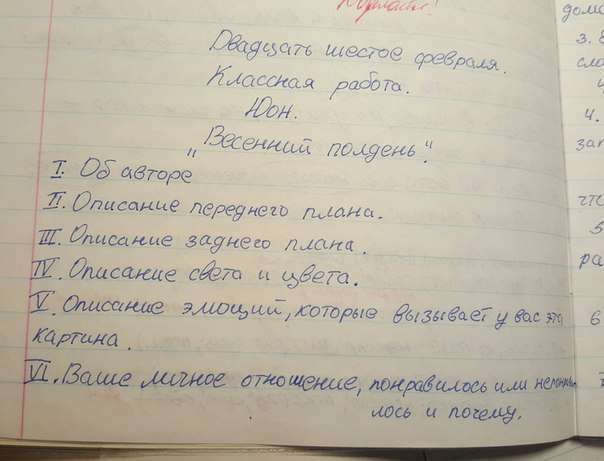 Двадцать шестое февраля.
Классная работа.
Юон.
„Весенний полдень".
I. Об авторе
II. Описание переднего плана.
III. Описание заднего плана.
IV. Описание света и цвета.
V. Описание эмоций, которые вызывает у вас эта
картина.
VI. Ваше личное отношение, понравилось или
лось и почему.
3.
4.
5
6